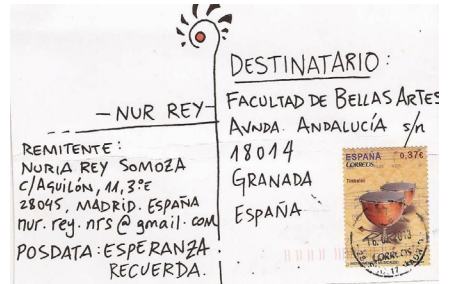 — NUR REY —
REMITENTE:
NURIA REY SOMOZA
C/Aguilón, 11, 3ºE
28045, MADRID. ESPAÑA
nur.rey.nrs@gmail.com
POSDATA: ESPERANZA.
RECUERDA.
DESTINATARIO:
FACULTAD DE BELLAS ARTES
AVNDA. ANDALUCÍA s/n
18014
GRANADA
ESPAÑA
ESPAÑA 0,37€
CORREOS
Timbales
CORREOS